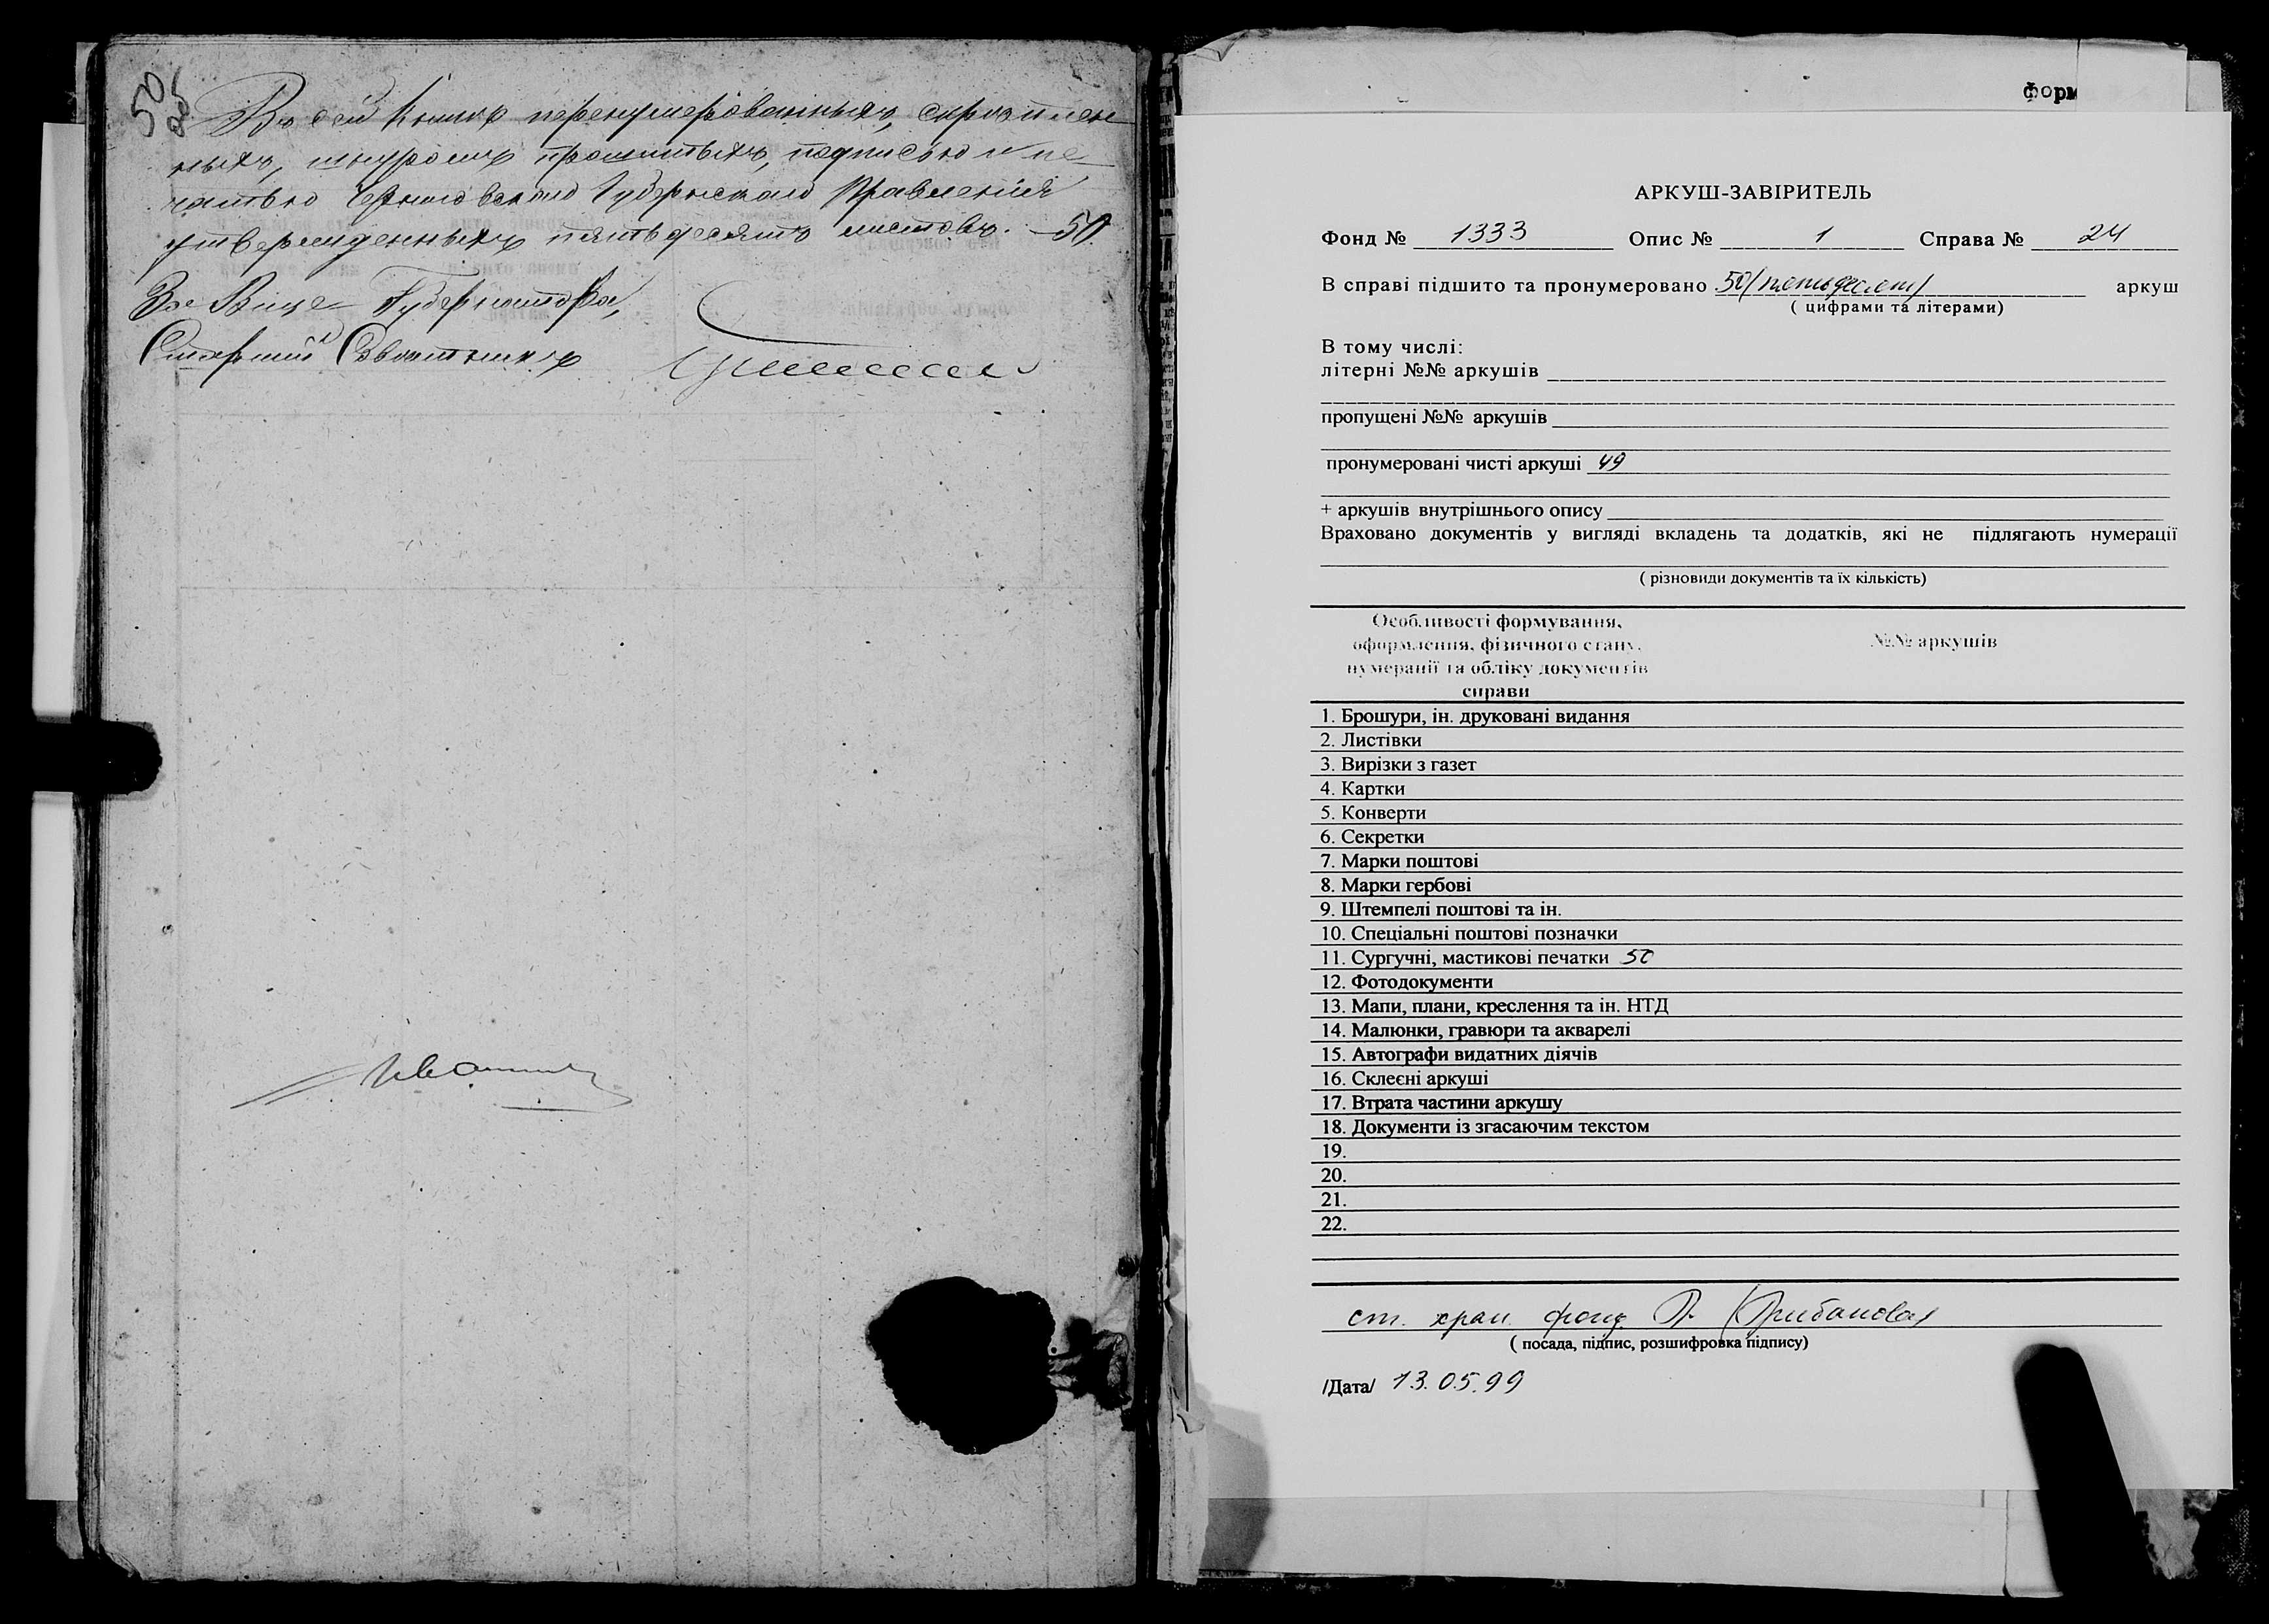 50 об
Въ сей книгѣ перенумерованныхъ, скрѣплен
ныхъ, шнуромъ прошитыхъ, подписью и пе
чатью Черниговскаго Губернскаго Правленія
утвержденныхъ пятьдесятъ листовъ. — 50.
За Вице Губернатора,
Старшій Совѣтникъ
форм
АРКУШ-ЗАВІРИТЕЛЬ
Фонд № 1333 Опис № 1 Справа № 24
В справі підшито та пронумеровано 50 (пятьдесят) аркуш
( цифрами та літерами)
В тому числі:
літерні №№ аркушів
пропущені №№ аркушів
пронумеровані чисті аркуші 49
+ аркушів внутрішнього опису
Враховано документів у вигляді вкладень та додатків, які не підлягають нумерації
( різновиди документів та їх кількість)
Особливості формування,
оформлення, фізичного стану, №№ аркушів
нумерації та обліку документів
справи
1. Брошури, ін. друковані видання
2. Листівки
3. Вирізки з газет
4. Картки
5. Конверти
6. Секретки
7. Марки поштові
8. Марки гербові
9. Штемпелі поштові та ін.
10. Спеціальні поштові позначки
11. Сургучні, мастикові печатки 50
12. Фотодокументи
13. Мапи, плани, креслення та ін. НТД
14. Малюнки, гравюри та акварелі
15. Автографи видатних діячів
16. Склеєні аркуші
17. Втрата частини аркушу
18. Документи із згасаючим текстом
19.
20.
21.
22.
ст. хран. фонд.
( посада, підпис, розшифровка підпису)
/Дата/ 13.05.99